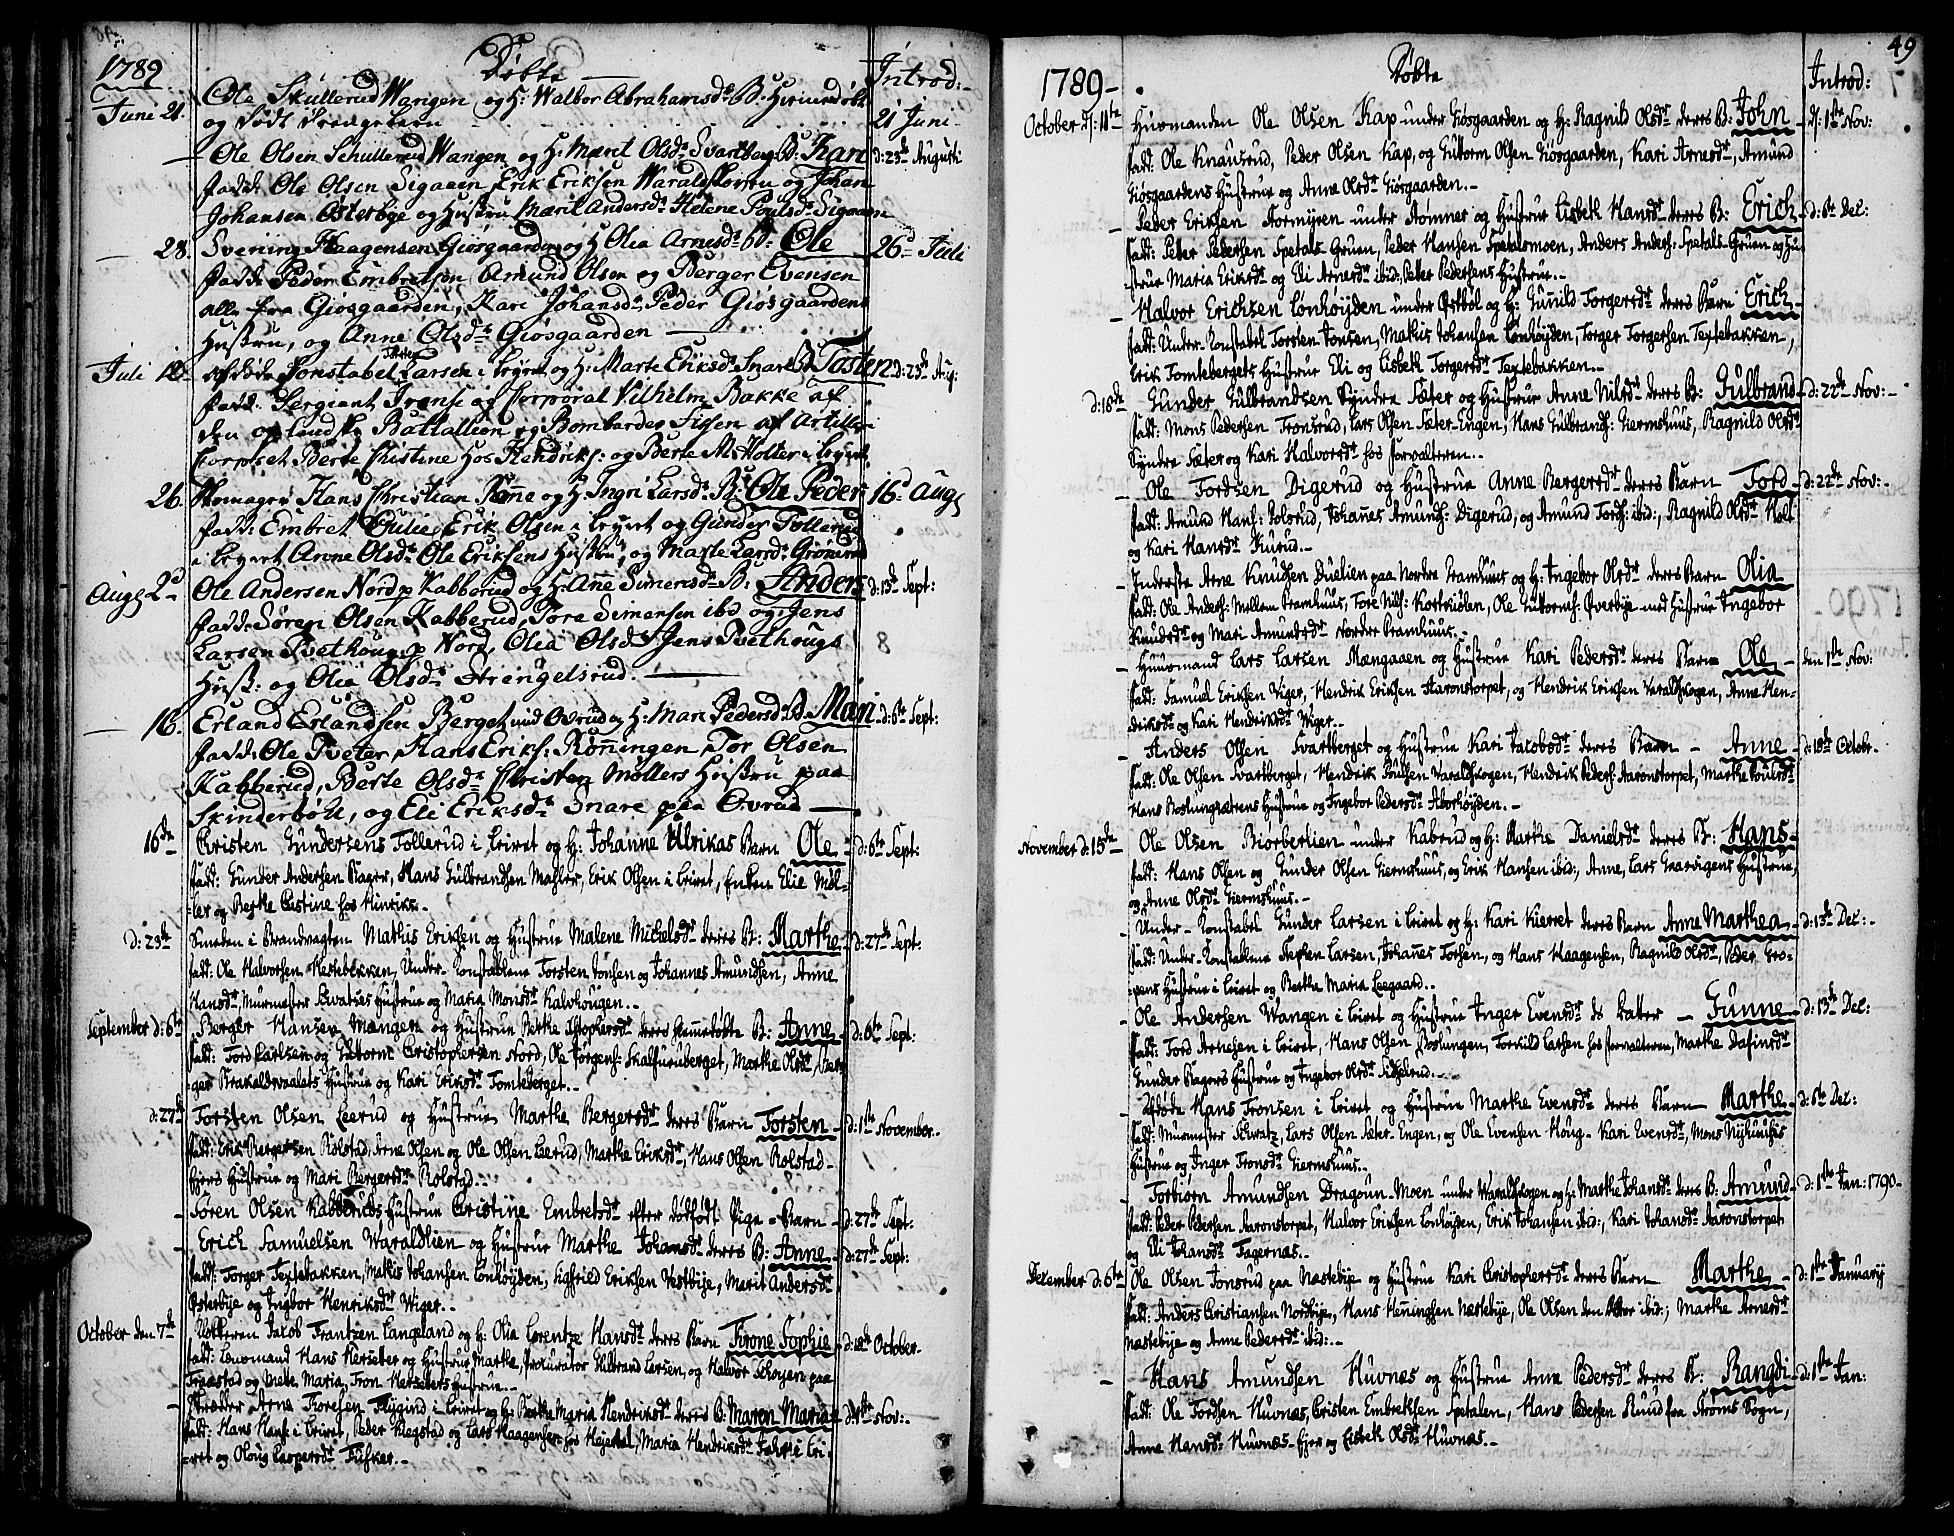 1789
Døbte
Introd:
Juni 21.
Ole Skullerud Wangen og H: Walbor Abrahamsdr B:
og født
21 Juni
Ole Olsen Schullerud Wangen og H: Maret Olsdr Svartberg B: Kari
d: 23de Augusti
fadd: Ole Olsen Sigaaen Erik Eriksen Waraldskoven og Johan
Johansen Østerbye og Hustru Marit Andersdr Helene Poulsdr Sigaaen
28.
Svening Haagensen Giørsgaarden og H Olia Arnesdr B: Ole
26de Juli
fadd: Peder Embretsen Amund Olsen og Berger Evensen
alle fra Giørsgaarden, Kari Johansdr Peder Giørsgaardens
Hustru, og Anne Olsdr Giørsgaarden
Juli 12.
afdøde Constabel Larsen i Leyret og H: Marte Eriksdr Snare B Tosten
d: 23de Aug:
fadd: Sergiant Tronse og Corporal Vilhelm Bakke af
den oplandske Battallion og Bombarder af Artilleri
Corpset Berte Christine hos Hendriks: og Berte M: Holter i Leyret
26.
Skomager Hans Christian Rønne og H: Ingri Larsdr B: Ole Peder
16de Aug
fadd: Embret Erik Olsen i Leyret og Gunder Tollerud
i Leyret Anne Olsdr Ole Eriksens Hustru, og Marte Larsdr Grønerud
Aug 2de
Ole Andersen Nord Kabberud og H: Anne Simensdr B: Anders
d: 13de Sept:
fadd: Søren Olsen Kabberud, Tore Simensen ibd og Jens
Larsen Tvethoug Nord, Olia Olsdr Jens Tvethougs
Hust: og Olia Olsdr Strengelsrud.
16.
Erland Erlandsen Berget under Ovrud og H: Mari Pedersdr B Mari
d: 6te Sept:
fadd: Ole Tveter, Hans Eriks: Rønningen Tor Olsen
Kabberud, Berte Olsdr Christen Møllers Hustru paa
Skinderbøhl, og Eli Eriksdr Snare paa Ovrud
16de
Christen Gundersens Tollerud i Leiret og H: Johanne Ulrikas Barn Ole
d: 6te Sept:
fadd: Gunder Andersen Bager, Hans Gulbrandsen Mahler, Erik Olsen i Leiret, Enken Elie Møl-
=ler og Berthe Cistine hos Hinriks.
d: 23de
Smeden i Brandvagten Mathis Eriksen og Hustrue Malene Michelsdr deres B: Marthe
d: 27de Sept:
fadd: Ole Halvorsen Hestebekken, Under-Constablene Torsten Jonsen og Johannes Amundsen, Anne
Hansdr, Murmester Schvatses Hustrue og Maria Monsdr Kalvhougen.
September d: 6te
Berger Hansen Mængen og Hustrue Berthe Cristophersdr deres hiemedøbte B: Anne
d: 6te Sept:
fadd: Tord Carlsen og Guttorm Cristophersen Nord, Ole Jørgens: Skalfuruberget, Marthe Olsdr, Ber-
ger Hustrue og Kari Eriksdr Tomteberget.
d: 27de
Torsten Olsen Leerud og Hustrue Marthe Bergersdr deres Barn Torsten
d: 1ste November.
fadd: Erik Bergersen Rolstad, Arne Olsen og Ole Olsen Leerud, Marthe Eriksdr, Hans Olsen Rolstad-
fiers Hustrue og Mari Bergersdr Rolstad.
Søren Olsen Kabberuds Hustrue Cristine Embretsdr efter dødfødt Pige-Barn
d: 27de Sept:
Erich Samuelsen Waraldlien og Hustrue Marthe Johansdr deres B: Anne
d: 27de Sept:
fadd: Torger Textebakken, Mathis Johansen Lonhøyden, Sigfried Eriksen Vestbye, Marit Andersdr
Østerbye og Ingbor Henriksdr Wiger.
October den 7de
Jacob Frantzen Langeland og H: Olia Lorentze Hansdr deres Barn Tirone Sophie
d: 18de October.
fadd: Lensmand Hans Herseter og Hustrue Marthe, Procurator Hilbrand Larsen, og Halvor Schoyen paa
og Mette Maria, Tron Herseters Hustrue.
Skræder Arne Toresen Flygind i Leiret og H: Berthe Maria Hendriksdr deres B: Maren Maria
Nov:
fadd: Hans Hans: i Leiret, Peder Klegstad og Lars Haagensen hos Maria Hendriksdr i Lei-
=ret og Oloug Caspersdr Fusker.
49
1789.
Døbte
Introd:
October d: 11te
Huusmanden Ole Olsen Kap under Giøsgaarden og H: Ragnild Olsdr deres B: John
d: 1ste Nov:
fadd: Ole Knausrud, Peder Olsen Kap, og Guttorm Olsen Giøsgaarden, Kari Arnesdr, Amund
Giøsgaardens Hustrue og Anne Olsdr Giøsgaarden.
Peder Eriksen Stormyren under Stømner og Hustrue Lisbeth Hansdr deres B: Erich
d: 6te Dec:
fadd: Petter Pedersen Spetals-Gruen, Peder Hansen Spetalsmoen, Anders Anders: Spetals-Gruen og Hu-
strue Maria Eriksdr og Eli Arnesdr ibid: Petter Pedersens Hustrue.
Halvor Erichsen Lonhøyden under Østbøl og H: Gunild Torgersdr deres Barn Erich
fadd: Under-Constabel Torsten Jonsen, Mathis Johansen Lonhøyden, Torger Torgersen Textebakken,
Erik Tomtebergets Hustrue Eli og Lisbeth Torgersdr Textebakken.
d: 18de
Gunder Gulbrandsen Syndre Sæter og Hustrue Anne Nilsdr deres B: Gulbrand
d: 22de Nov:
fadd: Mons Pedersen Tronsrud, Lars Olsen Sæter-Engen, Hans Gulbrands: Giermshuus, Ragnild Olsdr
Syndre Sæter og Kari Halvorsdr hos Forvalteren.
Ole Tordsen Digerud og Hustrue Anne Bergersdr deres Barn Tord
d: 22de Nov:
fadd: Amund Hans: Rolsrud, Johannes Amunds: Digerud, og Amund Tords: ibid:, Ragnild Olsdr Holt
og Kari Hansdr Kurud.
Inderste Arne Knudsen Duelien paa Nordre Bramhuus og H: Ingebor Olsdr deres Barn Olia
fadd: Ole Anders: Mellem Bramhuus, Tore Nils: Kortkiølen, Ole Guttorms: Overbye med Hustrue Ingebor
Knudsdr og Mari Amundsdr Nordre Bramhuus.
Huusmand Lars Larsen Mængaaen og Hustrue Kari Pedersdr deres Barn Ole
den 1ste Nov:
fadd: Samuel Eriksen Viger, Hendrik Eriksen Aaronstorpet, og Hendrik Eriksen Varaldskogen, Anne Hen-
driksdr og Kari Hendriksdr Wiger.
Anders Olsen Svartberget og Hustrue Kari Jacobsdr deres Barn Anne
d: 18de Octobr.
fadd: Ole Olsen Svartberget, Hendrik Poulsen Varaldskogen, Hendrik Peders: Aaronstorpet, Marthe Poulsdr
Hans Hustrue og Ingebor Pedersdr Aborhøyden.
November d: 15de
Ole Olsen Biørberlien under Kabrud og H: Marthe Danielsdr deres B: Hans
fadd: Hans Olsen og Gunder Olsen Giermshuus, og Erik Hansen ibid:, Anne, Lars Hustrue,
og Anne Olsdr Giermshuus.
Under-Constabel Gunder Larsen i Leiret og H: Kari Kierret deres Barn Anne Marthea
d: 13de Dec:
fadd: Under-Constablene Stephen Larsen, Johannes Torsen, og Hans Haagensen, Ragnild Olsdr, Peder Gro-
=pens Hustrue i Leiret og Berthe Maria Leegaard.
Ole Andersen Wangen i Leiret og Hustrue Inger Evensdr ds Datter Gunne
d: 13de Dec:
fadd: Tord Arnesen i Leiret, Hans Olsen Boslungen, Torkild Larsen hos Forvalteren, Marthe Dafinsdr
Gunder Bagers Hustrue og Ingebor Olsdr
Afdøde Hans Tronsen i Leiret og Hustrue Marthe Evensdr deres Barn Marthe
d: 6te Dec:
fadd: Murmester Schwatz, Lars Olsen Sæter-Engen, og Ole Evensen Houg- Kari Evensdr, Mons Nyhuuses
Hustrue og Inger Tronsdr Giermshuus.
Torbiørn Amundsen Dragoun-Moen under Waraldskogen og H: Marthe Johansdr deres B: Amund
d: 1ste Jan: 1790.
fadd: Peder Pedersen Aaronstorpet, Halvor Eriksen Lonhøyden, Erik Johansen ibid:, Kari Johansdr Aaronstorpet
og Eli Johansdr Fagernæs.
December d: 6te
Ole Olsen Tonsrud paa Næstebye og Hustrue Kari Cristophersdr deres Barn Marthe
d: 1ste Januarij
fadd: Anders Cristiansen Nordbye, Hans Henningsen Næstebye, Ole Olsen den ibid:, Marthe Arnesdr
Næstebye og Anne Pedersdr ibid:.
Hans Amundsen Huvnæs og Hustrue Anne Pedersdr deres B: Rangdi
d: 1ste Jan:
fadd: Ole Tordsen Huvnæs, Cristen Embrethsen Spetalen, Hans Pedersen Ruud fra Strøms Sogn,
Anne Hansdr Huvnæs-Eier og Lisbeth Olsdr Huvnæs.